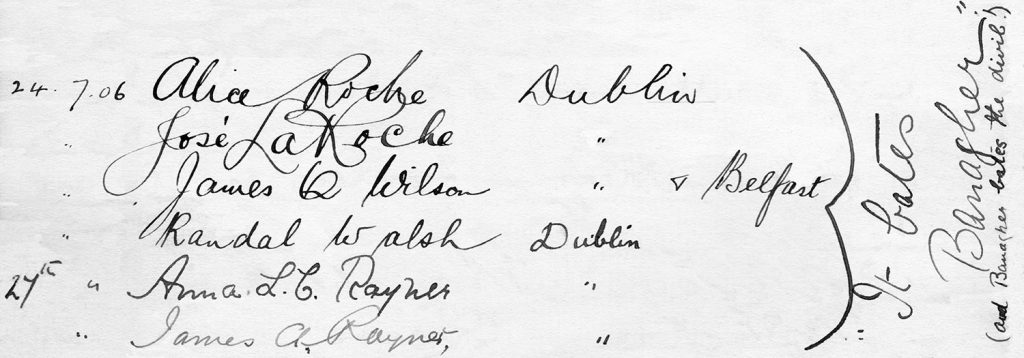 24. 7.06 Alice Roche Dublin
" José LaRoche "
" James Q Wilson " & Belfast
" Randal Walsh Dublin
27th " Anna. L. C. Rayner "
" James A. Rayner, "
It bates
Banagher"
(and Banagher bates the divil!)